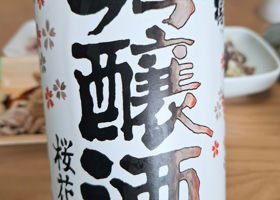 吟醸酒
桜花